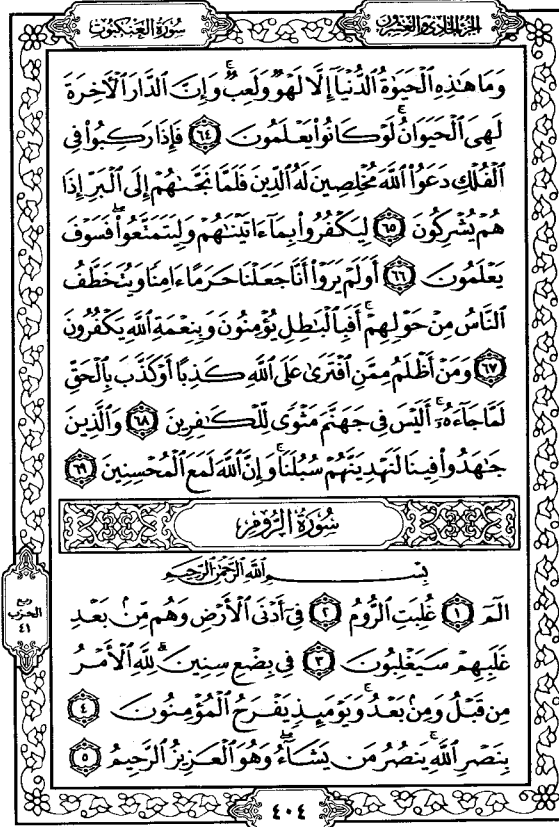 الجزء الحادي والعشرون
سورة العنكبوت
وَمَا هَٰذِهِ ٱلْحَيَوٰةُ ٱلدُّنْيَآ إِلَّا لَهْوٌ وَلَعِبٌ ۚ وَإِنَّ ٱلدَّارَ ٱلْأَخِرَةَ
لَهِىَ ٱلْحَيَوَانُ ۚ لَوْ كَانُوا۟ يَعْلَمُونَ ٦٤ فَإِذَا رَكِبُوا۟ فِى
ٱلْفُلْكِ دَعَوُا۟ ٱللَّهَ مُخْلِصِينَ لَهُ ٱلدِّينَ فَلَمَّا نَجَّىٰهُمْ إِلَى ٱلْبَرِّ إِذَا
هُمْ يُشْرِكُونَ ٦٥ لِيَكْفُرُوا۟ بِمَآ ءَاتَيْنَٰهُمْ وَلِيَتَمَتَّعُوا۟ ۖ فَسَوْفَ
يَعْلَمُونَ ٦٦ أَوَلَمْ يَرَوْا۟ أَنَّا جَعَلْنَا حَرَمًا ءَامِنًا وَيُتَخَطَّفُ
ٱلنَّاسُ مِنْ حَوْلِهِمْ ۚ أَفَبِٱلْبَٰطِلِ يُؤْمِنُونَ وَبِنِعْمَةِ ٱللَّهِ يَكْفُرُونَ
٦٧ وَمَنْ أَظْلَمُ مِمَّنِ ٱفْتَرَىٰ عَلَى ٱللَّهِ كَذِبًا أَوْ كَذَّبَ بِٱلْحَقِّ
لَمَّا جَآءَهُۥٓ ۚ أَلَيْسَ فِى جَهَنَّمَ مَثْوًى لِّلْكَٰفِرِينَ ٦٨ وَٱلَّذِينَ
جَٰهَدُوا۟ فِينَا لَنَهْدِيَنَّهُمْ سُبُلَنَا ۚ وَإِنَّ ٱللَّهَ لَمَعَ ٱلْمُحْسِنِينَ ٦٩
سورة الروم
بِسْمِ ٱللَّهِ ٱلرَّحْمَٰنِ ٱلرَّحِيمِ
الٓمٓ ١ غُلِبَتِ ٱلرُّومُ ٢ فِىٓ أَدْنَى ٱلْأَرْضِ وَهُم مِّنۢ بَعْدِ
غَلَبِهِمْ سَيَغْلِبُونَ ٣ فِى بِضْعِ سِنِينَ ۗ لِلَّهِ ٱلْأَمْرُ
مِن قَبْلُ وَمِنۢ بَعْدُ ۚ وَيَوْمَئِذٍ يَفْرَحُ ٱلْمُؤْمِنُونَ ٤
بِنَصْرِ ٱللَّهِ ۚ يَنصُرُ مَن يَشَآءُ ۖ وَهُوَ ٱلْعَزِيزُ ٱلرَّحِيمُ ٥
ربع
الحزب
٤١
٤٠٤